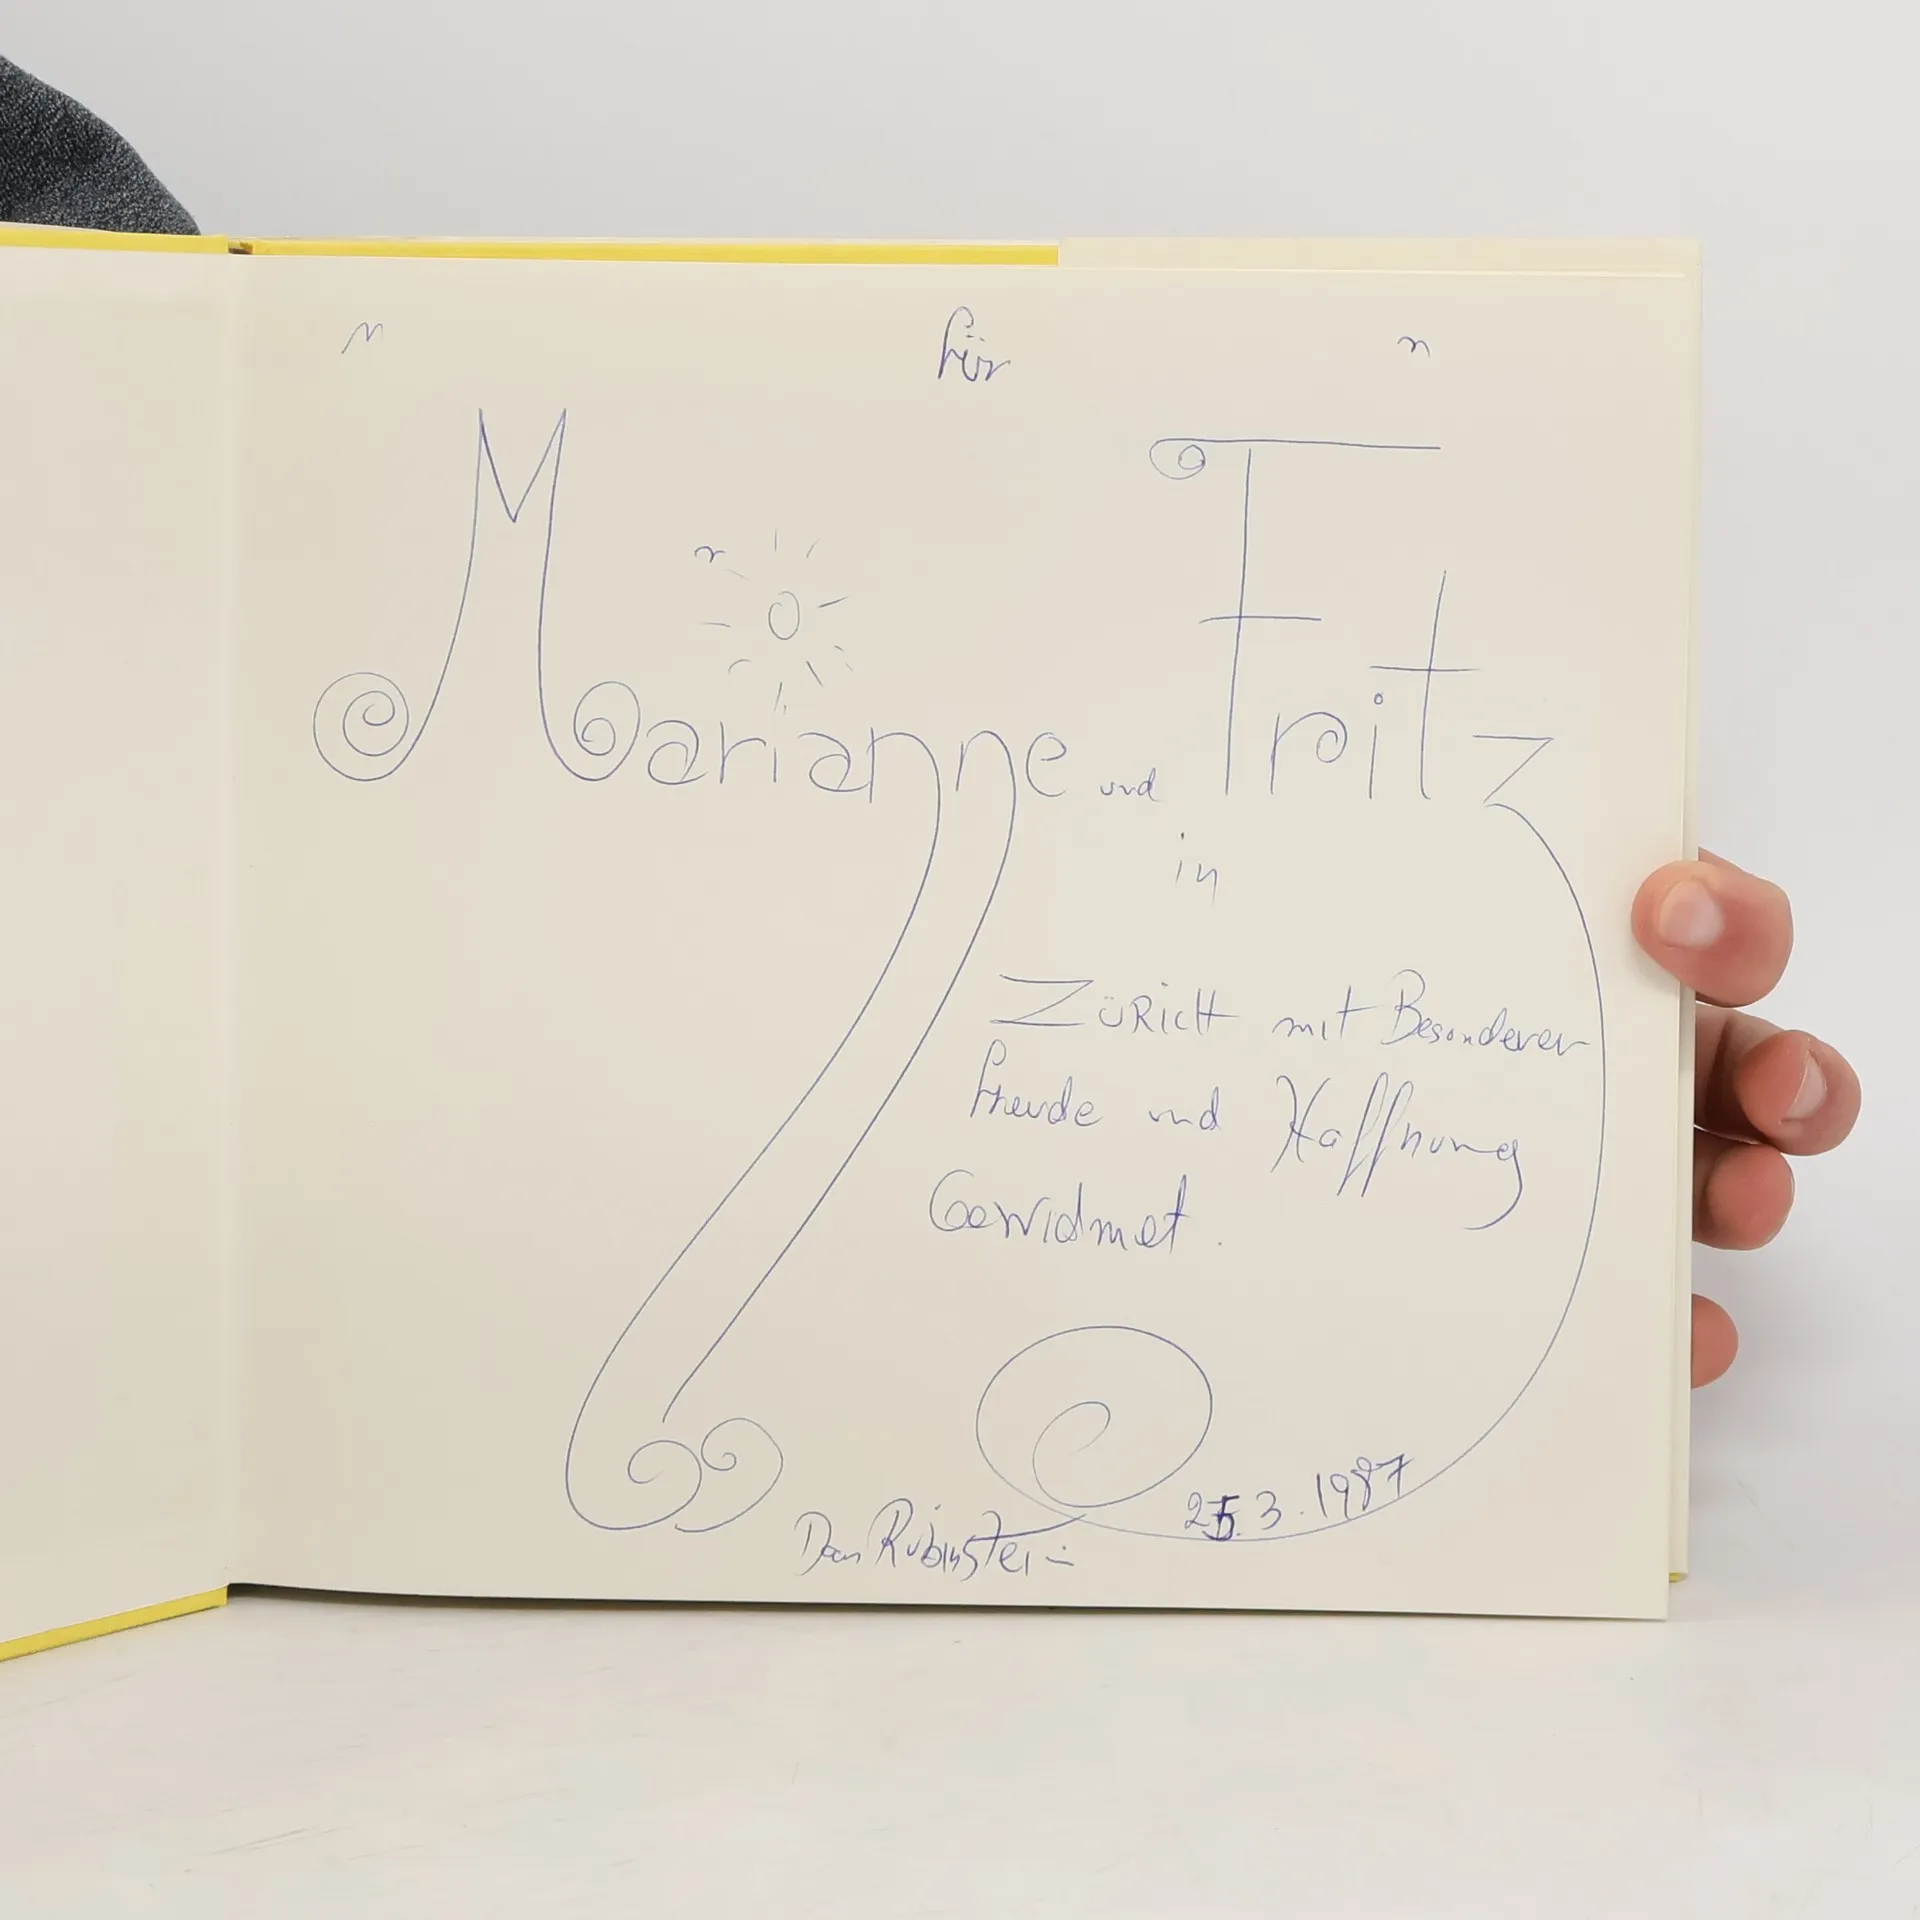 für
Marianne und Fritz
in
ZÜRICH mit Besonderer
Freude und Hoffnung
Gewidmet.
25.3.1987
Dan Rubinstein